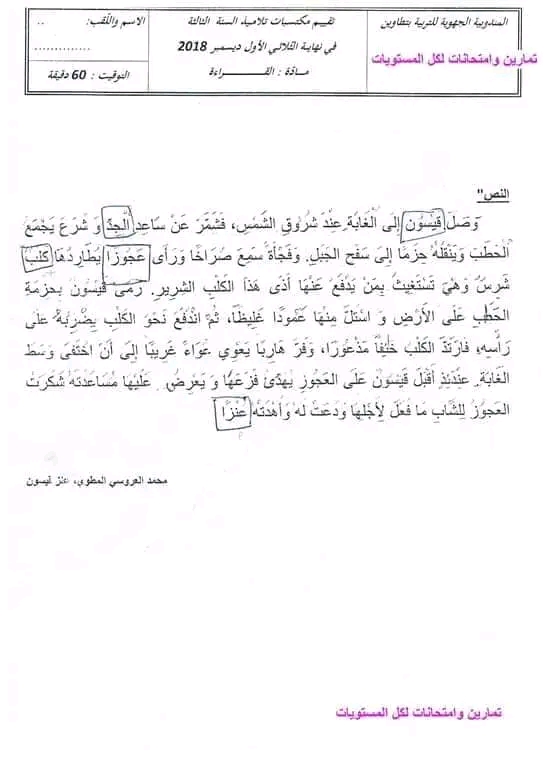 المندوبية الجهوية للتربية بتطاوين
تقييم مكتسبات تلاميذ السنة الثالثة
في نهاية الثلاثي الأول ديسمبر 2018
مادة : القـــراءة
الاسم واللقب: ..
..............
التوقيت : 60 دقيقة
تمارين وامتحانات لكل المستويات
النص"
وَصَلَ قَيْسُون إلَى الْغَابَةِ عِنْدَ شُرُوقِ الشَّمْسِ، فَشَمَّرَ عَنْ سَاعِدِ الْجِدِّ وَ شَرَعَ يَجْمَعُ
الْحَطَبَ وَيَنْقُلُهُ حِزَمًا إلَى سَفْحِ الْجَبَلِ. وَفَجْأَةً سَمِعَ صُرَاخًا وَرَأى عَجُوزًا يُطَارِدُهَا كَلْبٌ
شَرِسٌ وَهْيَ تَسْتَغِيثُ بِمَنْ يَدْفَعُ عَنْهَا أَذَى هَذَا الْكَلْبِ الشِّرِيرِ. رَمَى قَيْسُونُ بِحِزْمَةِ
الْحَطَبِ عَلَى الْأَرْضِ وَ اسْتَلَّ مِنْهَا عَمُودًا غَلِيظًا، ثُمَّ انْدَفَعَ نَحْوَ الْكَلْبِ يَضْرِبُهُ عَلَى
رَأْسِهِ، فَارْتَدَّ الْكَلْبُ خَلْفًا مَذْعُورًا، وَفَرَّ هَارِبًا يَعْوِي عُوَاءً غَرِيبًا إلَى أَنْ اخْتَفَى وَسَطَ
الْغَابَةِ. عِنْدَئِذٍ أَقْبَلَ قَيْسُونُ عَلَى الْعَجُوزِ يُهَدِّئُ فَزَعَهَا وَ يَعْرِضُ عَلَيْهَا مُسَاعَدَتَهُ شَكَرَتْ
الْعَجُوزُ لِلشَّابِّ مَا فَعَلَ لِأَجْلِهَا وَدَعَتْ لَهُ وَأَهْدَتْهُ عَنْزًا
محمد العروسي المطوي، عنز قيسون
تمارين وامتحانات لكل المستويات